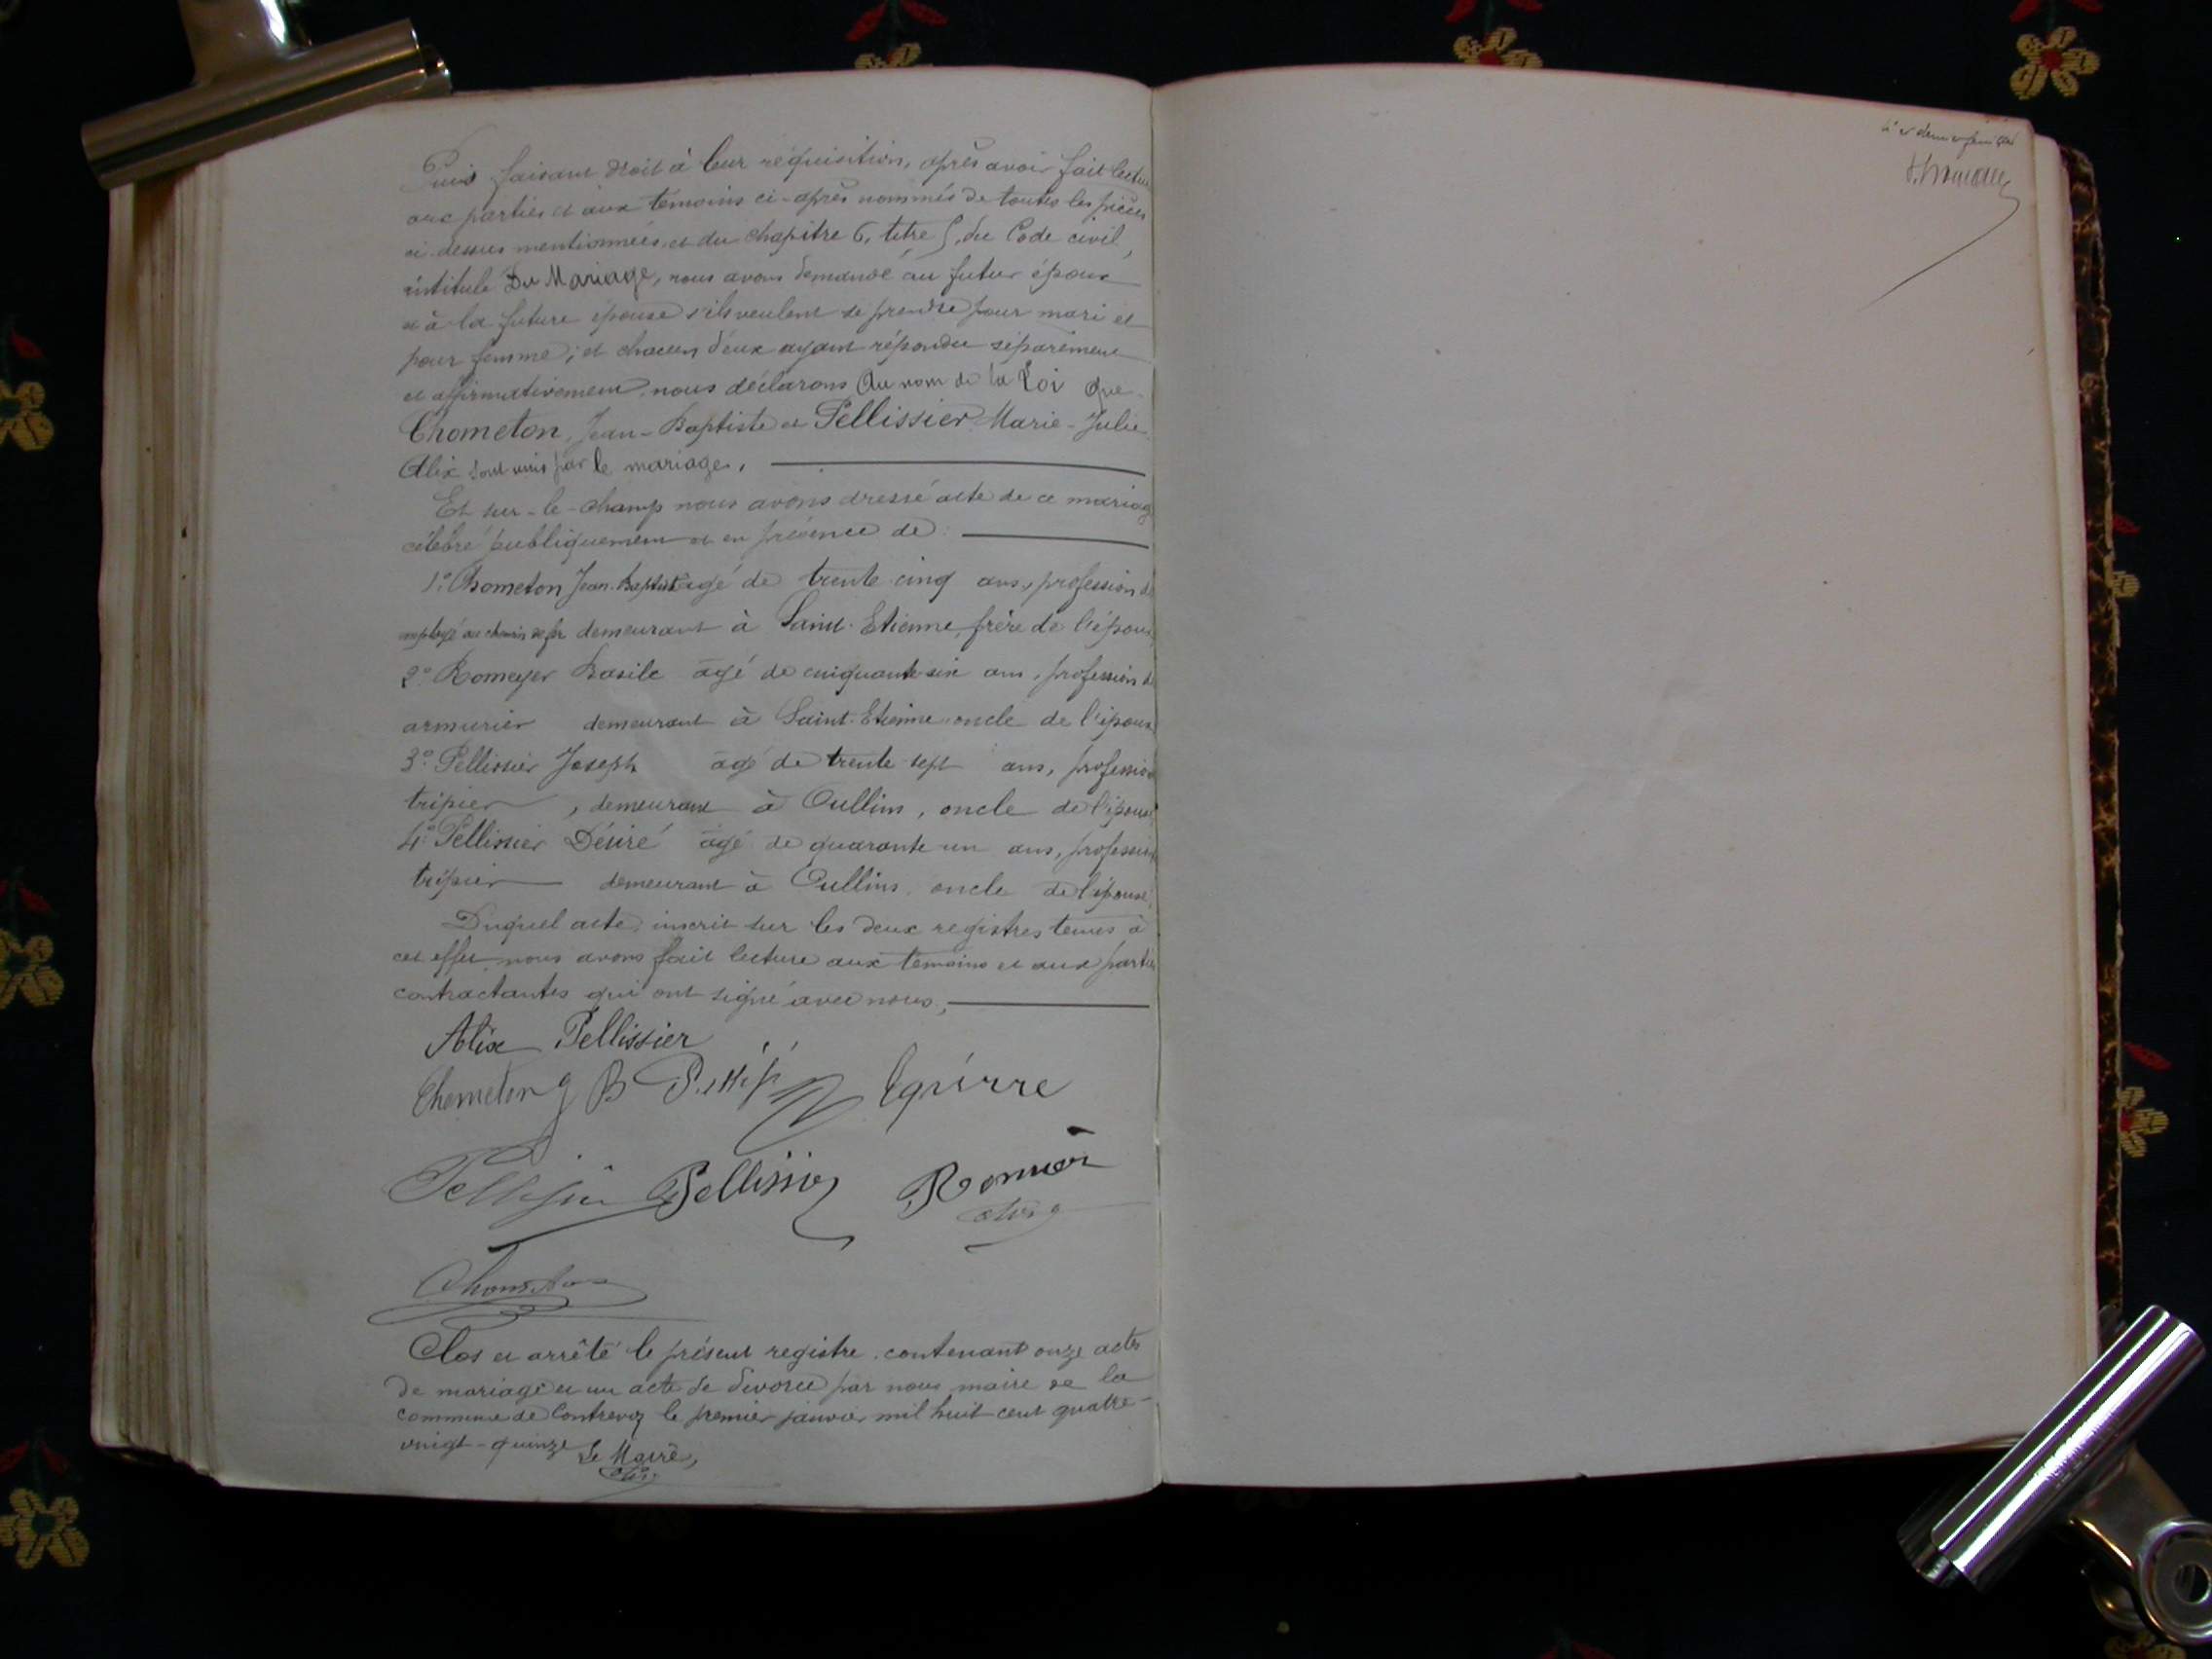 Puis faisant droit à leur réquisition, après avoir fait lecture
aux parties et aux témoins ci-après nommés de toutes les pièces
ci-dessus mentionnées et du chapitre 6, titre 5, du Code civil,
intitulé Du Mariage, nous avons demandé au futur époux
et à la future épouse s'ils veulent se prendre pour mari et
pour femme; et chacun d'eux ayant répondu séparément
et affirmativement, nous déclarons Au nom de la Loi que
Chometon, Jean-Baptiste et Pellissier Marie-Julie
Alix sont unis par le mariage.
Et sur-le-champ nous avons dressé acte de ce mariag
célébré publiquement et en présence de :
1º Chometon Jean-Baptiste âgé de trente cinq ans, profession d
employé au chemin de fer demeurant à Saint-Etienne, frère de l'époux
2º Romeyer Basile âgé de cinquante six ans, profession d
armurier demeurant à Saint-Etienne, oncle de l'époux
3º Pellissier Joseph âgé de trente sept ans, profession
tripier, demeurant à Oullins, oncle de l'épouse
4º Pellissier Désiré âgé de quarante un ans, profession
tripier demeurant à Oullins, oncle de l'épouse.
Duquel acte, inscrit sur les deux registres tenus à
cet effet, nous avons fait lecture aux témoins et aux parties
contractantes qui ont signé avec nous.
Alix Pellissier
Chometon B
Pellissier Pellissier
Chometon
Clos et arrêté le présent registre contenant onze actes
de mariage et un acte de divorce par nous maire de la
commune de Contrevoz le premier janvier mil huit cent quatre-
vingt-quinze
Le Maire,